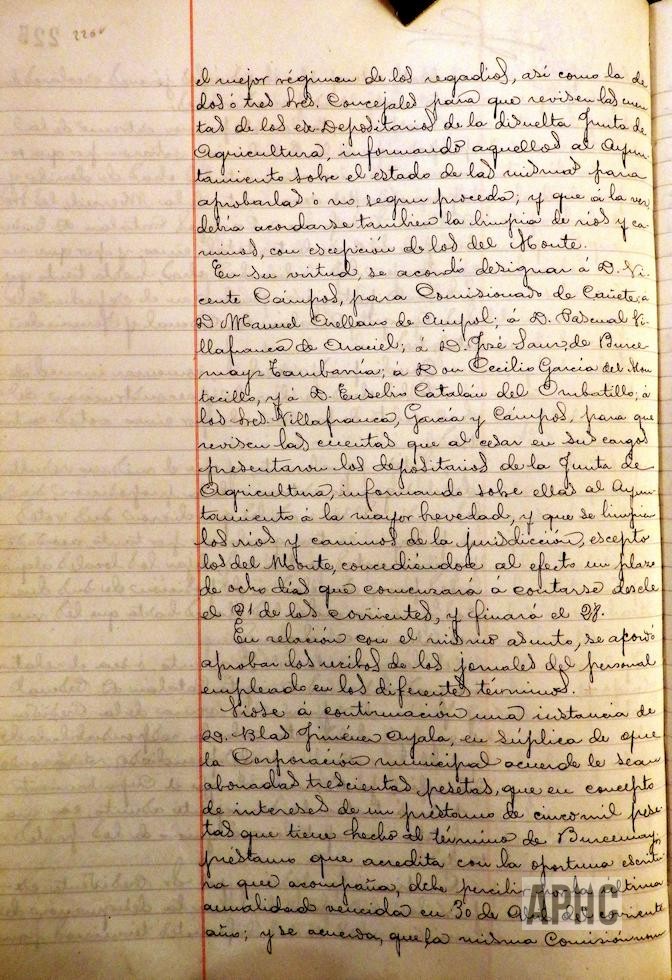 226v
el mejor régimen de los regadíos, así como la de
dos ó tres Sres. Concejales para que revisen las cuen-
tas de los ex-Depositarios de la disuelta Junta de
Agricultura, informando aquellos al Ayun-
tamiento sobre el estado de las mismas para
aprobarlas ó no, segun proceda; y que á la vez
debía acordarse tambien la limpia de rios y ca-
minos, con escepción de los del Monte.
En su virtud, se acordó designar á D. Vi-
cente Cámpos, para Comisionado de Cañete; á
D. Manuel Arellano de Ampol; á D. Pascual Vi-
llafranca de Araciel; á D. José Sanz, de Burce-
mayr Tambarría; á Don Cecilio García del Mon-
tecillo, y á D. Eusebio Catalán del Ombatillo; á
los Sres. Villafranca, García y Cámpos, para que
revisen las cuentas que al cesar en sus cargos
presentaron los depositarios de la Junta de
Agricultura, informando sobre ellas al Ayun-
tamiento á la mayor brevedad, y que se limpien
los rios y caminos de la jurisdicción, escepto
los del Monte, concediéndose al efecto un plazo
de ocho días que comenzará á contarse desde
el 21 de los corrientes, y finará el 28.
En relación con el mismo asunto, se acordó
aprobar los recibos de los jornales del personal
empleado en los diferentes términos.
Vióse á continuación una instancia de
D. Blas Jiménez Ayala, en súplica de que
la Corporación municipal acuerde le sean
abonadas trescientas pesetas, que en concepto
de intereses de un préstamo de cinco mil pese-
tas que tiene hecho al término de Burcemay,
préstamo que acredita con la oportuna escritu-
ra que acompaña, debe percibir por la última
anualidad vencida en 30 de Abril del corriente
año; y se acuerda, que la misma Comisión nom
APHC